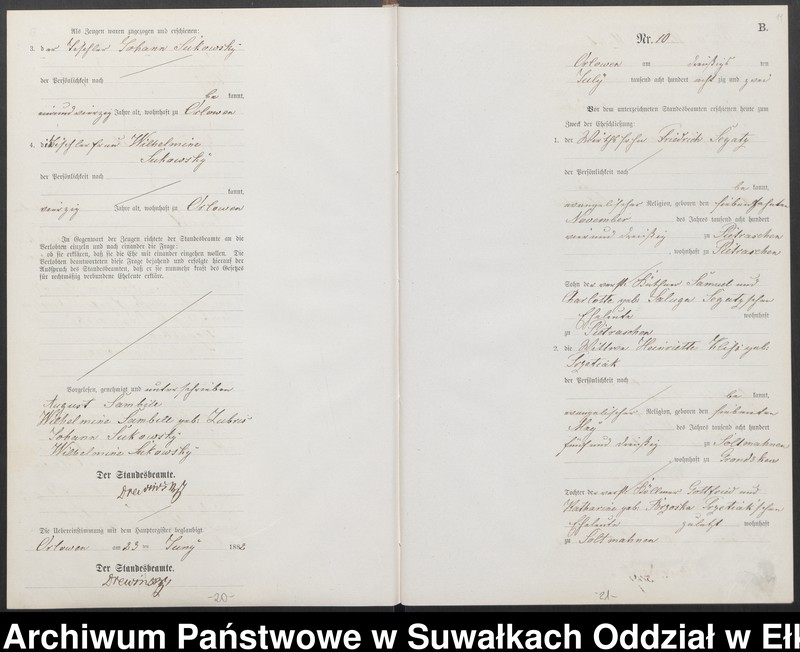 Als Zeugen waren zugezogen und erschienen:
3. der Tischler Johann Sukowsky
der Persönlichkeit nach
be kannt,
einundvierzig Jahre alt, wohnhaft zu Orlowen
4. die Tischlerfrau Wilhelmine
Sukowsky
der Persönlichkeit nach
kannt,
vierzig Jahre alt, wohnhaft zu Orlowen
In Gegenwart der Zeugen richtete der Standesbeamte an die
Verlobten einzeln und nach einander die Frage:
ob sie erklären, daß sie die Ehe mit einander eingehen wollen. Die
Verlobten beantworteten diese Frage bejahend und erfolgte hierauf der
Ausspruch des Standesbeamten, daß er sie nunmehr kraft des Gesetzes
für rechtmäßig verbundene Eheleute erkläre.
Vorgelesen, genehmigt und unterschrieben
August Sambill
Wilhelmine Sambill geb.
Johann Sukowsky
Wilhelmine Sukowsky
Der Standesbeamte.
Drewinsky
Die Uebereinstimmung mit dem Hauptregister beglaubigt
Orlowen am 23 ten Juny 1882
Der Standesbeamte.
Drewinsky
-20-
B.
Nr. 10
Orlowen am dreißigs ten
July tausend acht hundert acht zig und zwei
Vor dem unterzeichneten Standesbeamten erschienen heute zum
Zweck der Eheschließung:
1. der Wirthssohn Friedrich
der Persönlichkeit nach
be kannt,
evangelischer Religion, geboren den siebenzehnten
November des Jahres tausend acht hundert
vierund dreißig zu Pietraschen
, wohnhaft zu Pietraschen
Sohn des verst. Samuel und
Charlotte geb. Saluga
Eheleute wohnhaft
zu Pietraschen
2. die Wittwe Heinriette geb.
der Persönlichkeit nach
be kannt,
evangelischer Religion, geboren den siebenten
May des Jahres tausend acht hundert
fünfund dreißig zu Soltmahnen
, wohnhaft zu Grondsken
Tochter des verst. Gottfried und
Katharine geb.
Eheleute zuletzt wohnhaft
zu Soltmahnen
-21-
Archiwum Państwowe w Suwałkach Oddział w Ełk